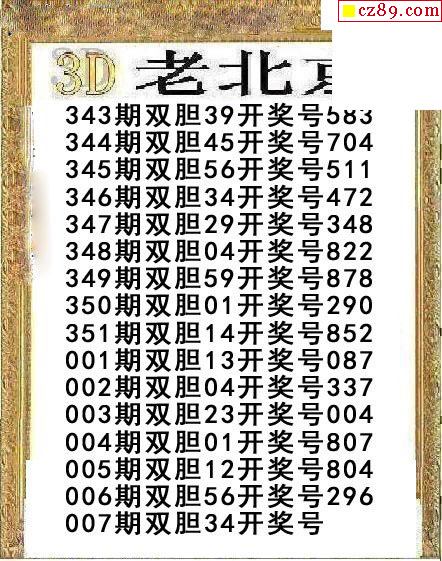 cz89.com
3D 老北
343期双胆39开奖号583
344期双胆45开奖号704
345期双胆56开奖号511
346期双胆34开奖号472
347期双胆29开奖号348
348期双胆04开奖号822
349期双胆59开奖号878
350期双胆01开奖号290
351期双胆14开奖号852
001期双胆13开奖号087
002期双胆04开奖号337
003期双胆23开奖号004
004期双胆01开奖号807
005期双胆12开奖号804
006期双胆56开奖号296
007期双胆34开奖号